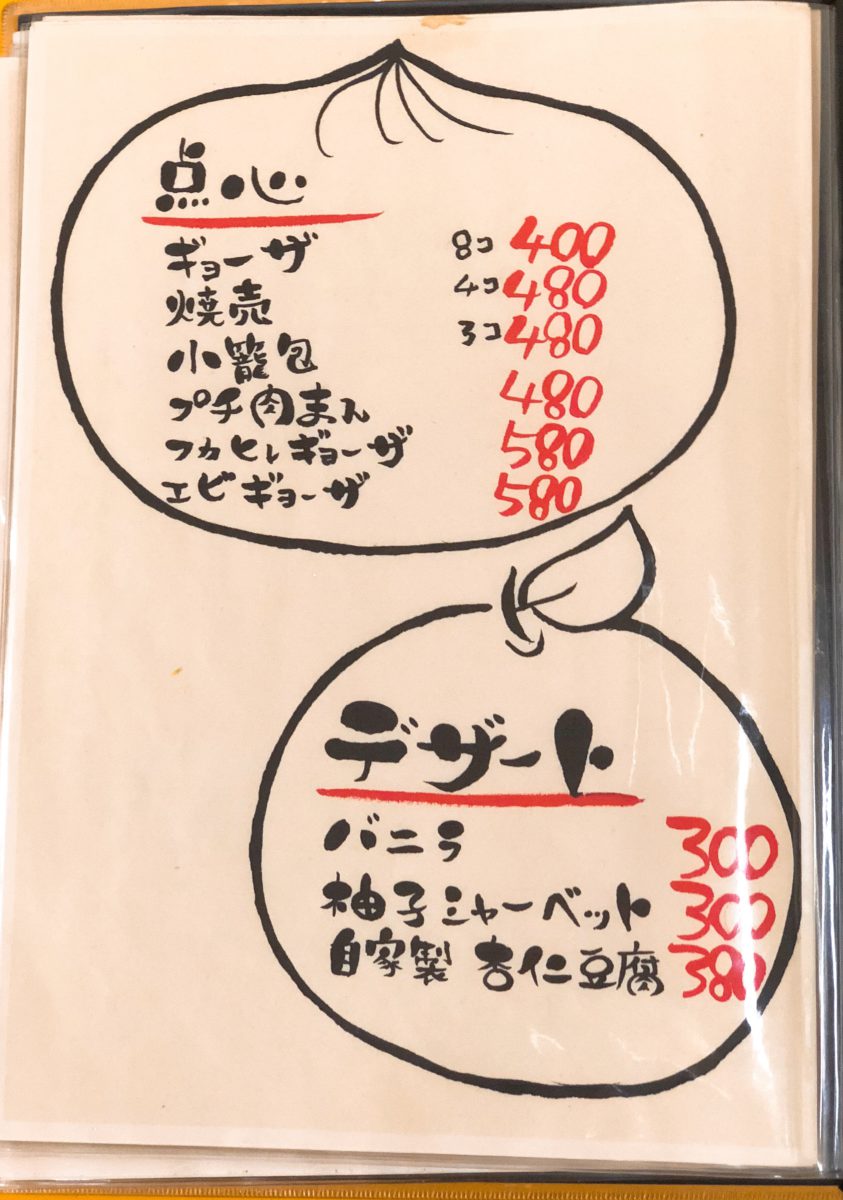 点心
ギョーザ 8コ 400
焼売 4コ 480
小籠包 3コ 480
プチ肉まん 480
フカヒレギョーザ 580
エビギョーザ 580
デザート
バニラ 300
柚子シャーベット 300
自家製 杏仁豆腐 380